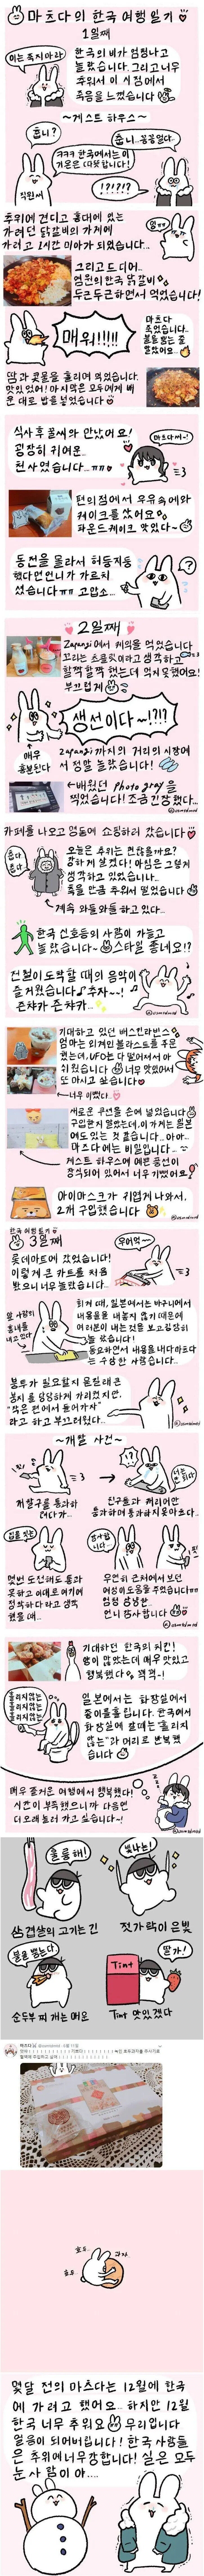 마츠다의 한국 여행 일기
1일째
이는 죽지아라
한국의 비가 엄청나고
놀랐습니다. 그리고 너무
추워서 이 시점에서
죽음을 느꼈습니다
~게스트 하우스~
춥니?
춥니..꽁꽁얼다..
ㅋㅋㅋ 한국에서는 이
기온은 따뜻합니다!
직원씨
!?!?!?
추위에 견디고 홍대에 있는
가려던 닭갈비의 가게에
가려고 1시간 미아가 되었습니다..
그리고 드디어..
염원의 한국 닭갈비
두근두근하면서 먹었습니다!
매워!!!!
마츠다
죽었습니다..
불을 뿜는 줄
알았어요...
땀과 콧물을 흘리며 먹었습니다.
맛있었어! 마지막은 모두에게 배
운 대로 밥을 넣었습니다
식사 후 꿀씨와 만났어요!
굉장히 귀여운..
천사였습니다...ㅠㅠ
마츠다씨~!
편의점에서 우유 속에와
케이크를 샀어요
파운드케이크 맛있다~
동전을 몰라서 허둥지둥
했다면 언니가 가르치
셨습니다ㅠㅠ 고맙소...
2일째
Zapangi에서 케익을 먹었습니다
부드럽게
생선이다~!?!?
매우
흥분한다
zapangi까지의 거리의 시장에
서 양말 놀랐습니다!
←배웠던 Photo gray를
찍었습니다! 조금 긴장했다...
카페를 나오고 명동에 쇼핑하러 갔습니다
춥다
춥다
오늘은 추위는 괜찮을까요?
강하게 샀었다! 아침은 그렇게
생각하고 있었습니다..
죽을 만큼 추워서 떨었습니다
계속 와들와들 하고 있다..
한국 신호등의 사람이 가늘고
놀랐습니다~ 스타일 좋네요!?
전철이 도착할 때의 음악이
즐거웠습니다 주자~~!
쥰챠카 쥰챠카..
기대하고 있던 배스킨라빈스
엄마는 외계인 블라스트를 주문
했는데, UFO는 다 떨어져서 아
쉬웠습니다 너무 맛있어서
또 마시고 싶습니다
←너무 이뻤다..
마츠다에게는 비밀입니다...
게스트 하우스에 예쁜 풍선이
장식되어 있어서 너무 귀여웠어요
아이마스크가 귀엽게 나와서,
2개 구입했습니다
한국 여행 일기
3일째
우웨어~~
롯데마트에 갔었습니다!
이렇게 큰 카트를 처음
봤으니 너무 놀랐습니다..
앞 사람의
흉내를
내고 있다
회계 때, 일본에서는 바구니에서
내용물을 내놓지 않기 때문에
여러분이 내는 것을 보고 당황하게
놀랐습니다!
두리번하면서 내용을 내다 마츠다
는 수상한 사람입니다..
봉투가 필요할지 몰랐는데 큰
봉지를 당당하게 가리켰지만,
"작은 편에서 들어가자"
라고 하고 부끄러웠다...
~개찰 사건~
개찰구를 통과하
려다가..
친구들과 께리어만
통과하며 통과하지 못하오다..
너는 안되지
입을 벗는
몇번 도전해도 통과
못하고 이대로 여기에
정착하다라고 생각
했을 때..
감사합니다...
우연히 근처에서 보던
여성이 도움을 주셨습니다ㅠㅠ
엄청 상냥한..
언니 감사합니다
기대하던 한국의 치킨!
양이 많았는데 매우 맛있었고
행복했다 꺽꺽~!
흘리지않는
흘리지않는
흘리지않는
흘리지않는
일본에서는 화장실에서
종이를 흘립니다. 한국에서
화장실에 갈때는 "흘리지
않는"가 머리로 반복했
습니다
매우 즐거운 여행에서 행복했다!
시간이 부족했으니까 다음엔
더 오래 놀러 가고 싶습니다~!
훌륭해!
빛나는!
삼겹살의 고기는 긴
젓가락이 은빛
불을 뿜는다
Tint
딸기!
순두부 찌개는 매우
Tint 맛있겠다
마츠다 @usmatmtd · 6월 11일
호두..
과자..
호두
몇달 전의 마츠다는 12월에 한국
에 가려고 했어요... 하지만 12월
한국 너무 추워요 무리입니다
얼음이 되어버립니다! 한국 사람들
은 추위에 너무 강합니다! 실은 모두
눈 사람이야....